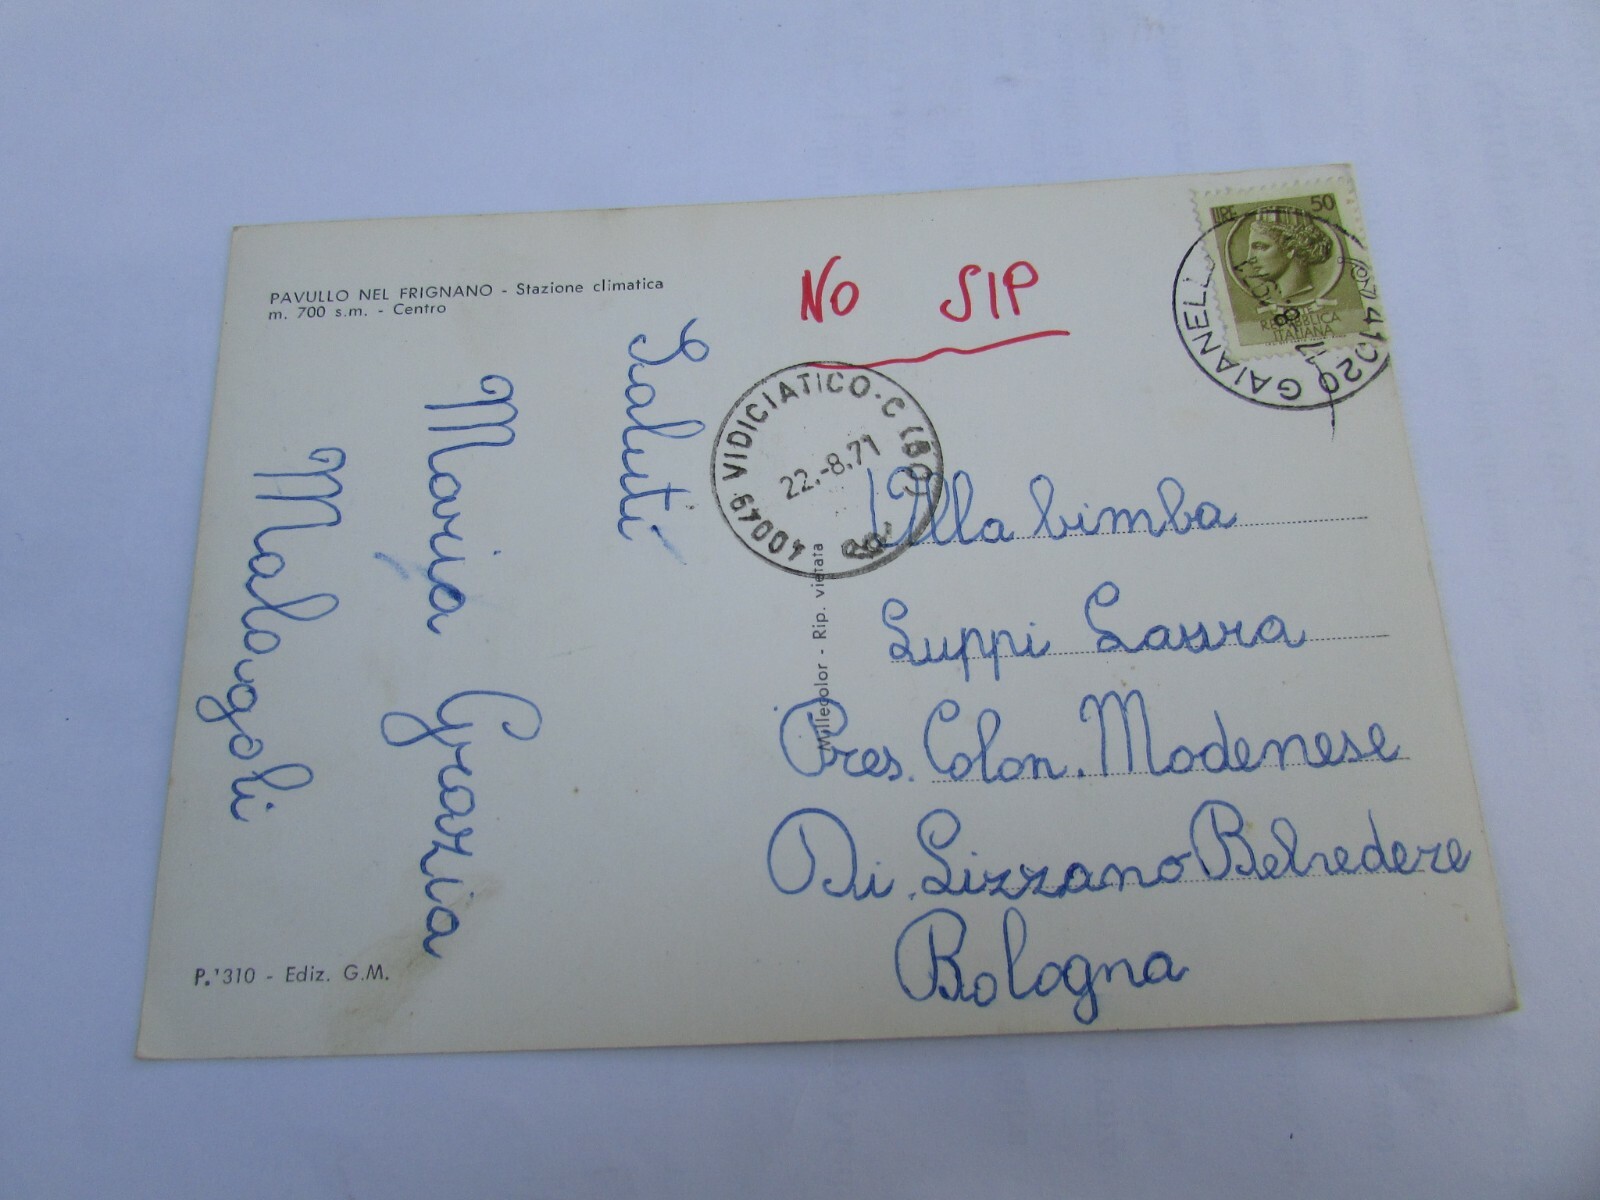 PAVULLO NEL FRIGNANO - Stazione climatica
m. 700 s.m. - Centro
Saluti
Maria Grazia
Malagoli
P. 310 - Ediz. G.M.
Millecolor - Rip. vietata
NO SIP
40049 VIDICIATICO - C (BO)
22.-8.71
LIRE 50
REPUBBLICA
ITALIANA
41020 GAIANELLO
Alla bimba
Luppi Laura
Pres. Colon. Modenese
Di Lizzano Belvedere
Bologna